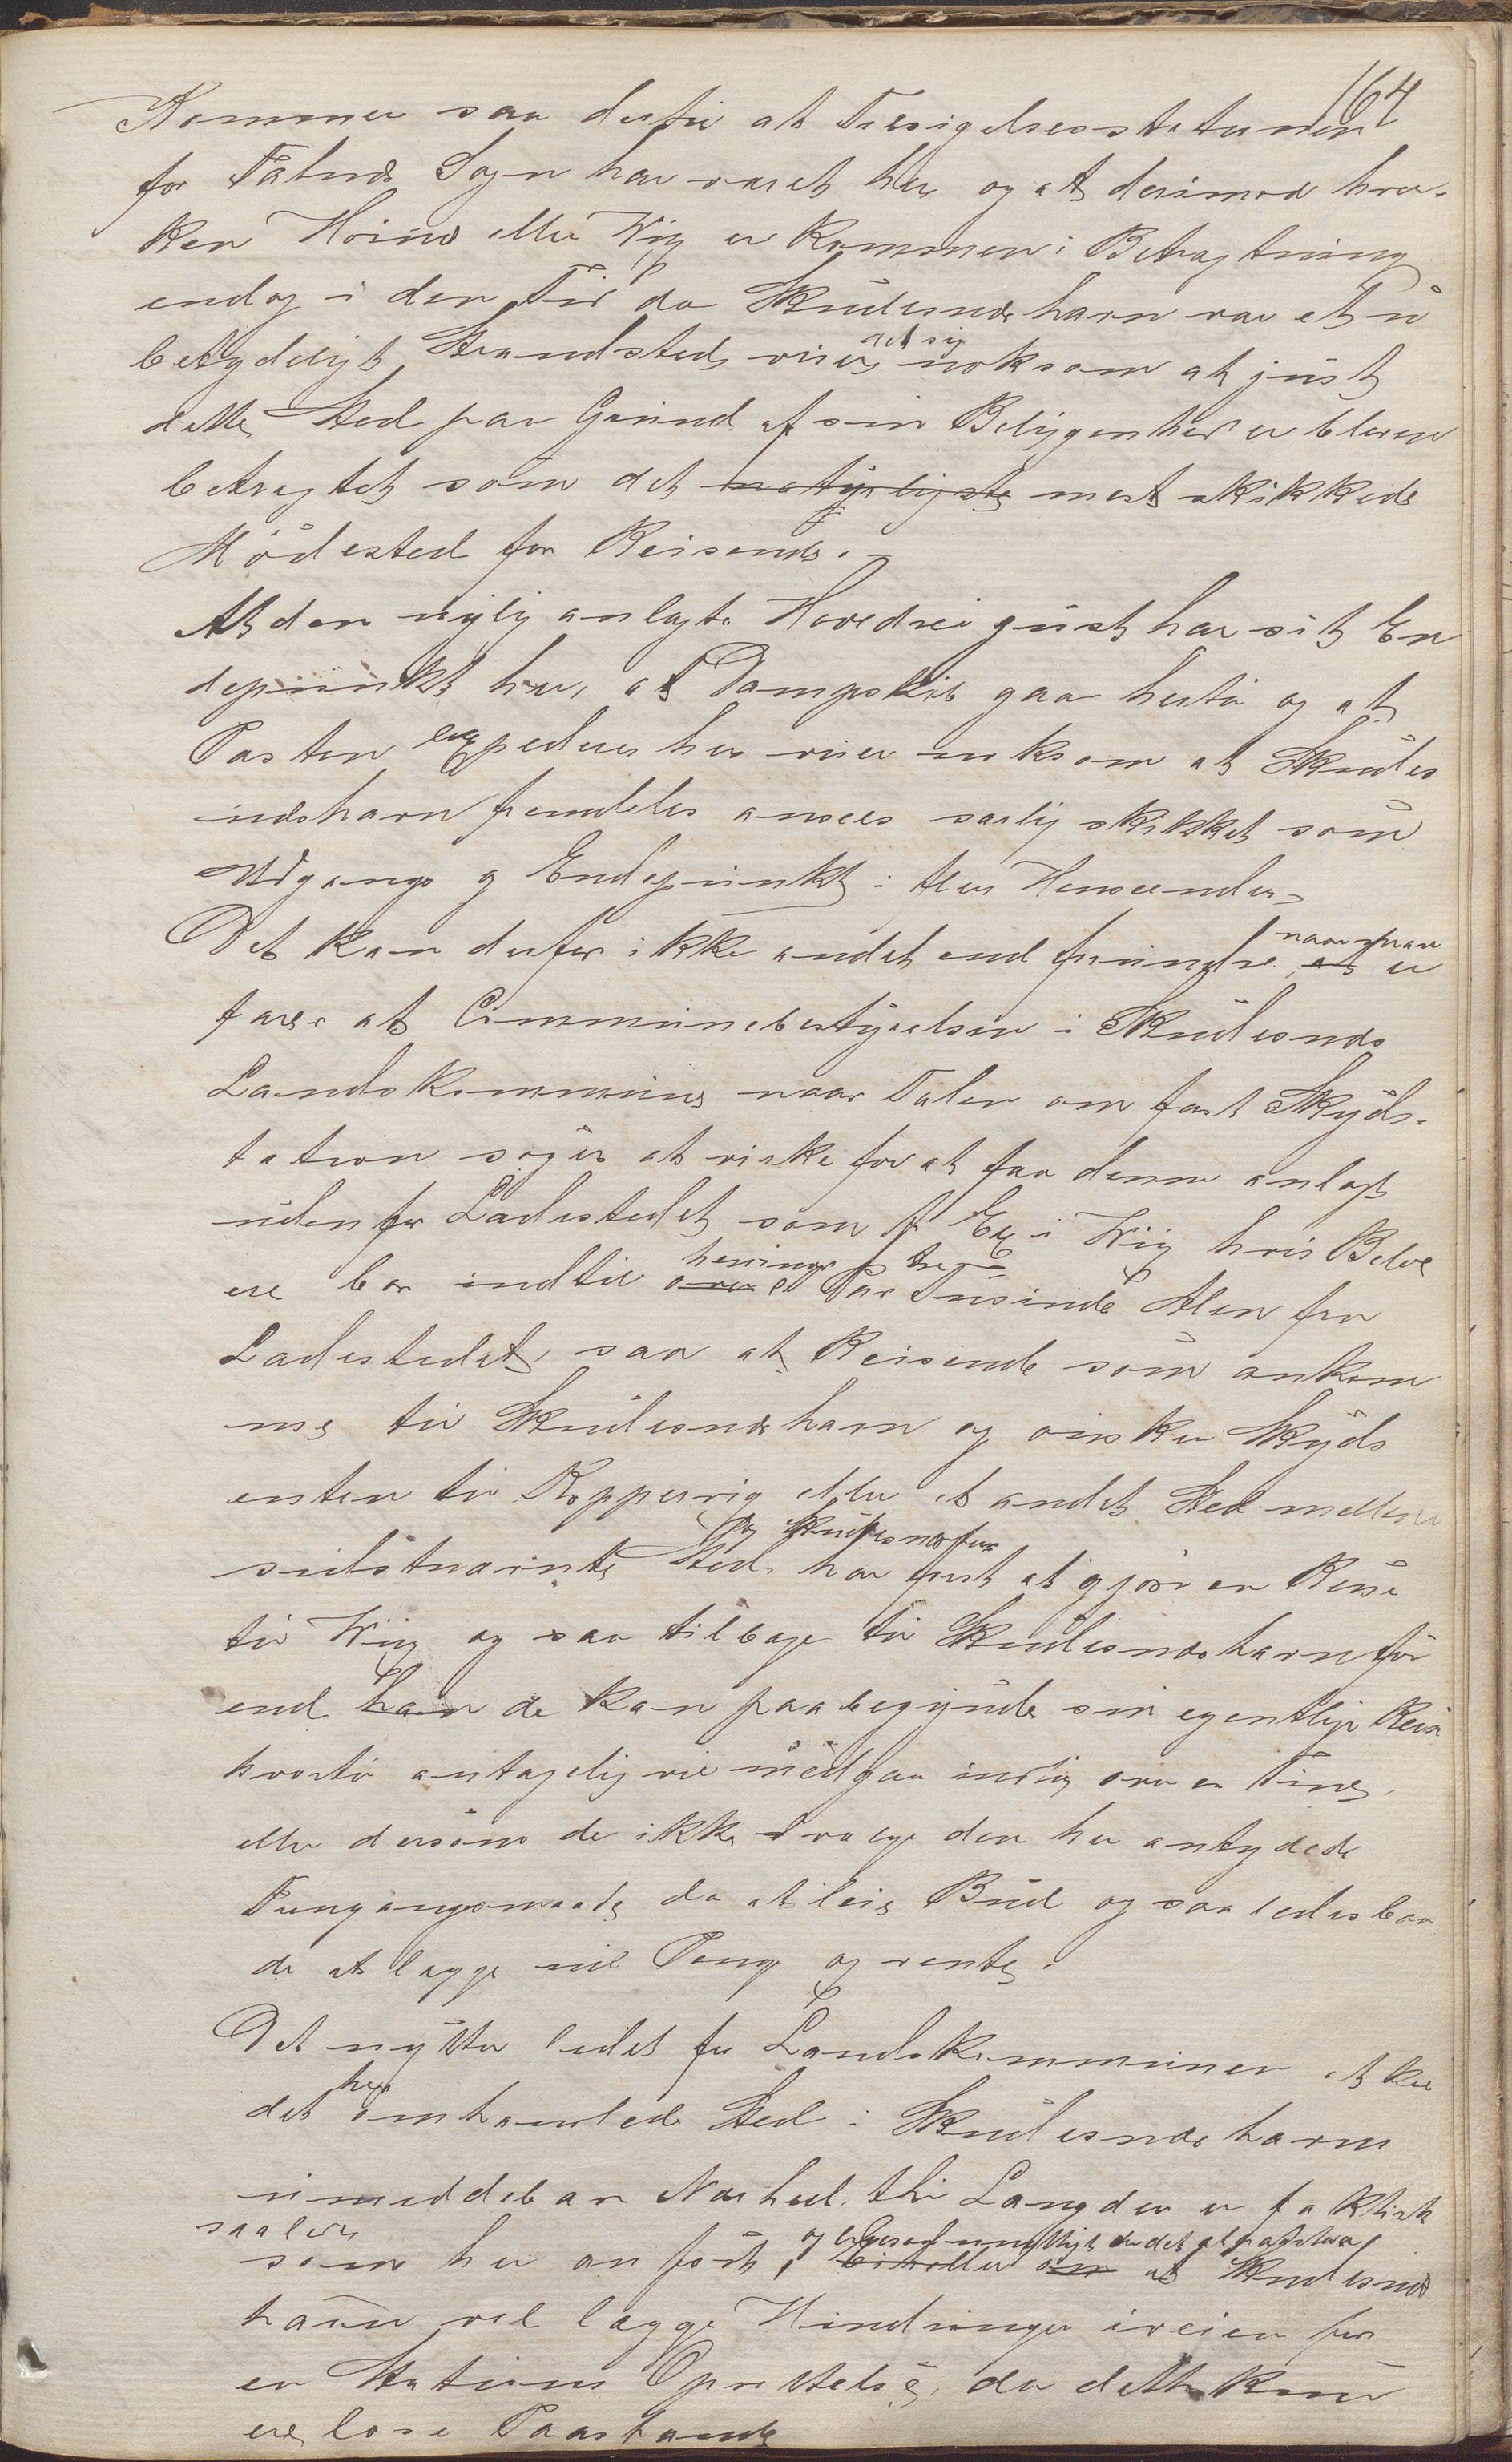 164
Kommer saa dertil at Tilsigelsesstationen
for Falnes Sogn har været her og at derimod hver-
ken Høines eller Wiig er kommen i Betragtning
endog i den Tid da Skudesneshavn var et u
betydeligt Strandsted, viser det sig noksom at just
dette Sted paa Grund af sin Beliggenhed er bleven
betragtet som det naturligste mest skikkede
Mödested for Reisende.
At den nylig anlagte Hovedvei just har sit En
depunkt her, at Dampskib gaar hertil og at
Posten expederes her viser noksom at Skudes
neshavn fremdeles ansees særlig skikket som
Udgangs og Endepunkt i flere Henseender.
Det kan derfor ikke andet end forundre at naar man er
farer at Communebestyrelsen i Skudesnes
Landskommune naar Talen om fast Skyds-
station søger at virke for at faa denne anlagt
udenfor Ladestedet som f Ex i Wiig hvis Beboe
ere bor indtil over et Par henimod tre Tusinde Alen fra
Ladestedet, saa at Reisende som ankom
me til Skudesneshavn og önsker Skyds
enten til Koppervig eller et andet Sted mellem
sidstnævnte Sted og Skudesnes har først at gjöre en Reise
til Wiig og saa tilbage til Skudesneshavn för
end han de kan paabegynde sin egentlige Reise
hvortil antagelig vil medgaa indtil over en Time,
eller dersom de ikke vælge den her antydede
Fremgangsmaade da at leie Bud og saaledes baa
de at lægge ud Penge og vente.
Det nytter lidet for Landskommunen at kal
det her omhandlede Sted i Skudesneshavns
umiddelbare Nærhed, thi Længden er faktisk
saaledes som her anført, og ligesaa unyttigt er det at paastaa eiheller om at Skudesnes
havn vel lægge Hindringer iveien for
en Stations Oprettelse, da dette kun
ere löse Paastande